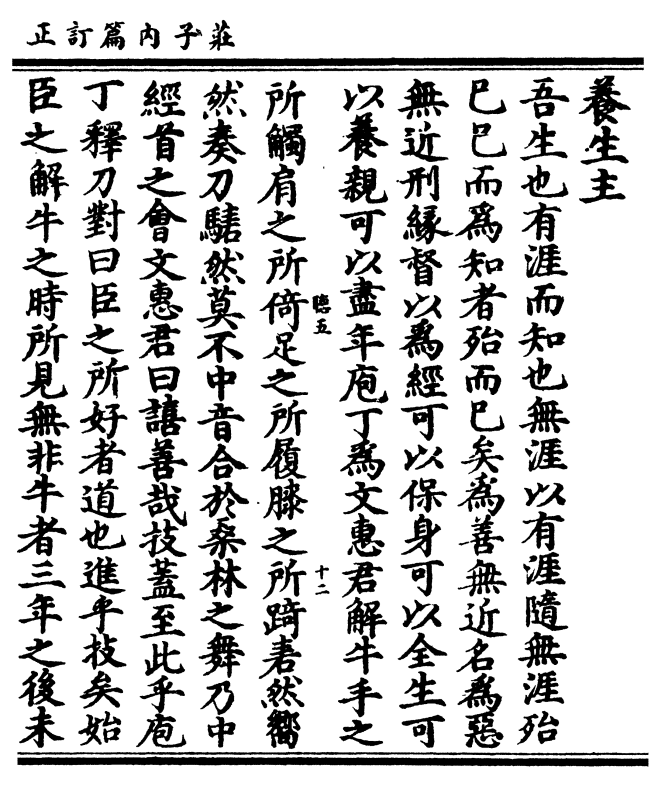 莊子內篇訂正
養生主
吾生也有涯而知也無涯以有涯隨無涯殆
已已而爲知者殆而已矣爲善無近名爲惡
無近刑緣督以爲經可以保身可以全生可
以養親可以盡年庖丁爲文惠君解牛手之
聽五
十二
所觸肩之所倚足之所履膝之所踦砉然嚮
然奏刀騞然莫不中音合於桑林之舞乃中
經首之會文惠君曰譆善哉技蓋至此乎庖
丁釋刀對曰臣之所好者道也進乎技矣始
臣之解牛之時所見無非牛者三年之後未